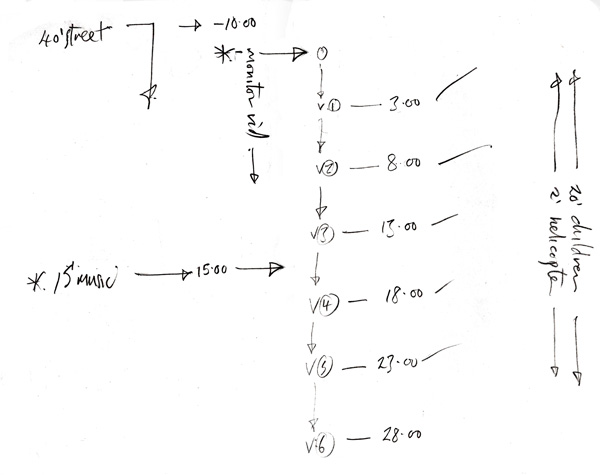 40' street → -10.00
* - monitor vid → 0
v.① — 3.00
v② — 8.00
v③ — 13.00
*. 15' music → 15.00 →
v④ — 18.00
v⑤ — 23.00
v.⑥ — 28.00
20' children
2' helicopte